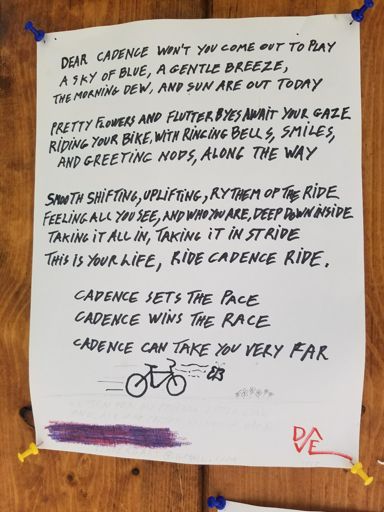 DEAR CADENCE WON'T YOU COME OUT TO PLAY
A SKY OF BLUE, A GENTLE BREEZE,
THE MORNING DEW, AND SUN ARE OUT TODAY
PRETTY FLOWERS AND FLUTTERBYES AWAIT YOUR GAZE
RIDING YOUR BIKE, WITH RINGING BELLS, SMILES,
AND GREETING NODS, ALONG THE WAY
SMOOTH SHIFTING, UPLIFTING, RYTHEM OF THE RIDE
FEELING ALL YOU SEE, AND WHO YOU ARE, DEEP DOWN INSIDE
TAKING IT ALL IN, TAKING IT IN STRIDE
THIS IS YOUR LIFE, RIDE CADENCE RIDE.
CADENCE SETS THE PACE
CADENCE WINS THE RACE
CADENCE CAN TAKE YOU VERY FAR
DAVE